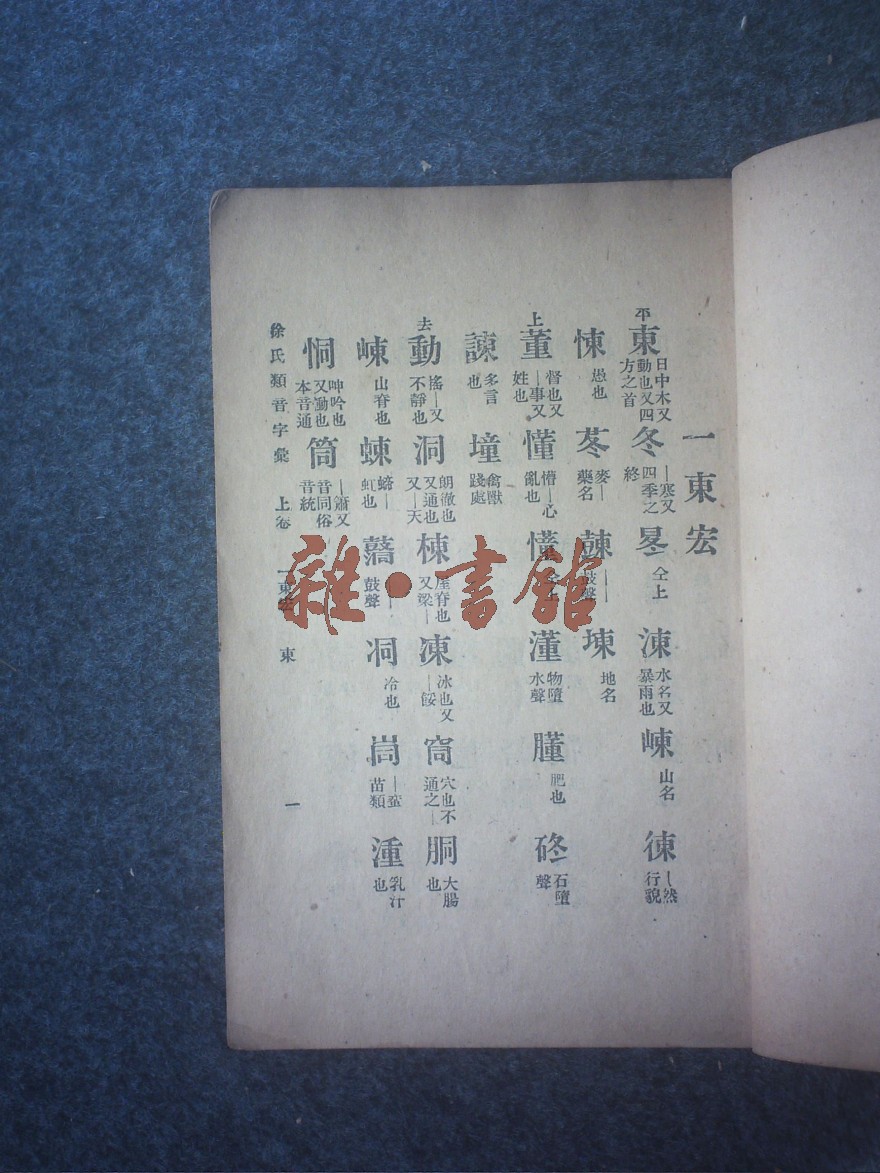 一東宏
平 東 日中木又動也又四方之首 冬 ｜寒又四季之終 仝上 涷 水名又暴雨也 崠 山名 徚 ｜然行貌
㤏 愚也 苳 麥｜藥名 鼓聲 埬 地名
上 董 督也又｜事又姓也 懂 懵｜心亂也 仝上 物墮水聲 肥也 石墮聲
諫 多言也 墥 禽獸踐處
去 動 搖｜又不靜也 洞 朗澈也又通也又｜天 棟 屋脊也又梁｜ 凍 冰也又｜餒 穴也不通之｜ 胴 大腸也
崠 山脊也 蝀 螮｜虹也 鼓聲 冷也 ｜蠻苗類 湩 乳汁也
恫 呻吟也又慟也本音通 筒 ｜簫又音同俗音統
徐氏類音字彙 上卷 一東宏 東 一
雜·書館